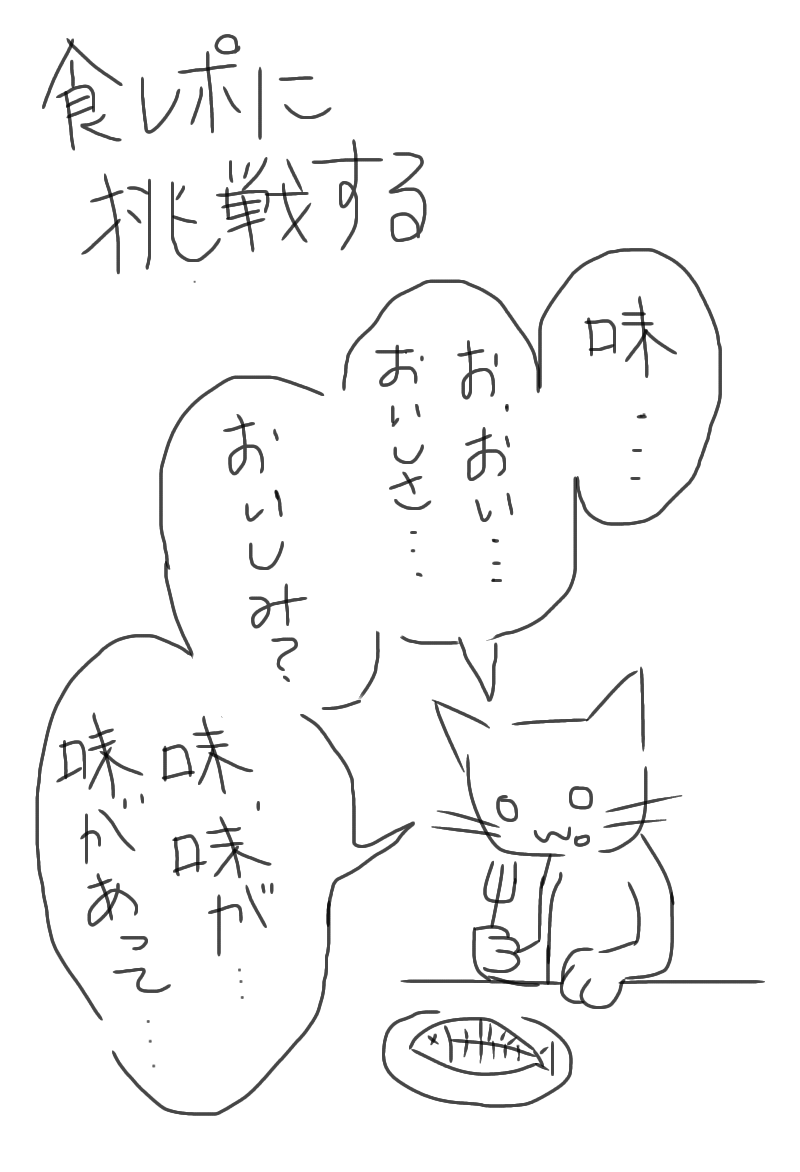 食レポに
挑戦する
味…
お、おい…
おいしさ…
おいしみ？
味、味が…
味があって…